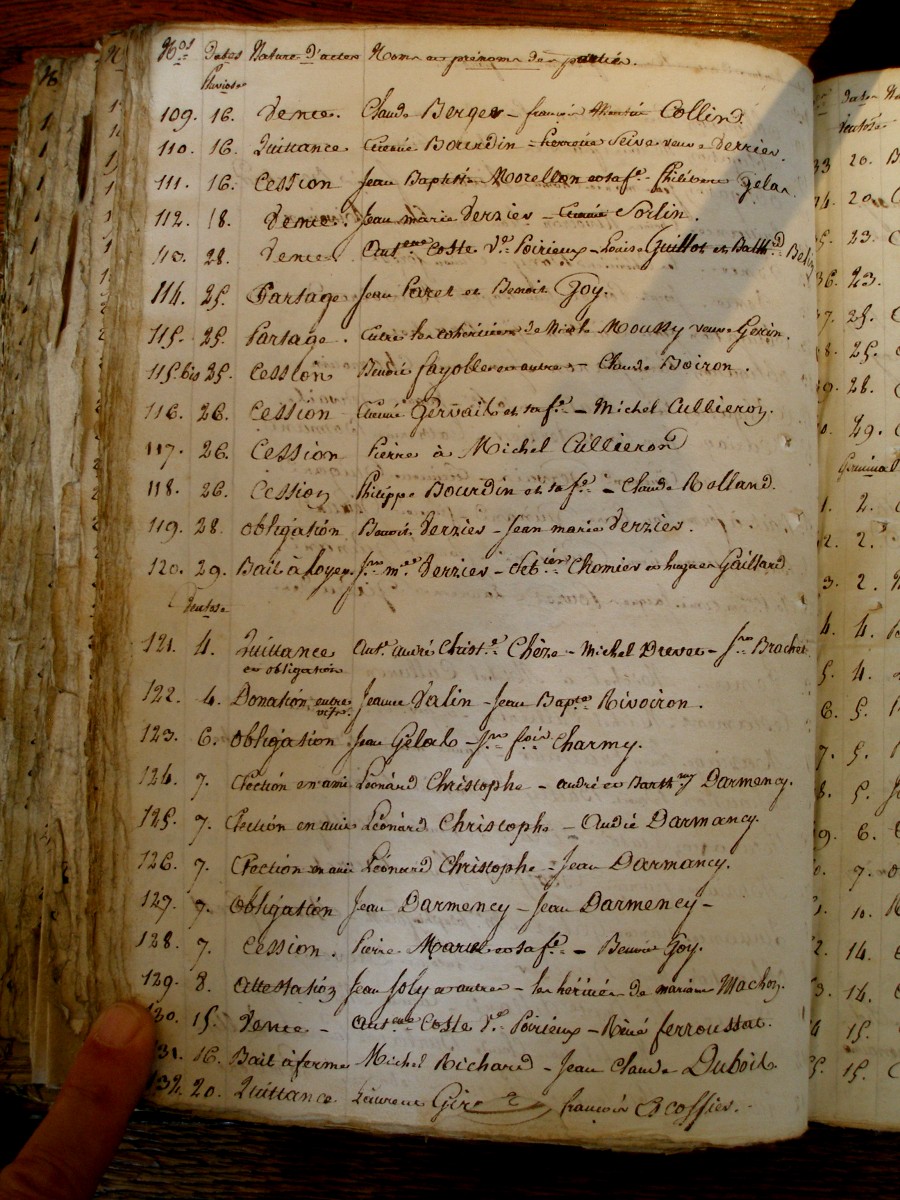 Nos Dates Nature d'actes Noms et prénoms des parties.
Pluviose
109. 16. Vente. Claude Berger - françois Collin
110. 16. Quittance Etienne Bourdin - Seive veuve Verrier.
111. 16. Cession Jean Baptiste Morellon et sa fe - Philibert Gelas
112. 18. Vente. Jean marie Verzier - Etienne Sorlin.
113. 28. Vente Anteune Coste Ve Poirieux - Louise Guillot et Balthd
114. 25. Partage Jean Peret et Benoit Goy.
115. 25. Partage. Entre les cohéritiers de veuve Gerin.
115.bis 25. Cession Benoit fayolle et autres - Claude Boiron.
116. 26. Cession Etienne Gervais et sa fe - Michel Cullieron.
117. 26. Cession Pierre à Michel Cullieron
118. 26. Cession Philippe Bourdin et sa fe - Claude Rolland.
119. 28. Obligation Benoit Verzier - Jean marie Verzier.
120. 29. Bail à loyer Verzier - Chomier et hugues Gaillard
Ventose
121. 4. Quittance Ant. andré Chèze - Michel Drevet - fcois Brachet
et obligation
122. 4. Donation entre Jeanne Valin - Jean Bapte Rivoiron.
vifs.
123. 6. Obligation Jean Gelas - Charmy.
124. 7. Election en ami Léonard Christophe - andré et Barthmy Darmency.
125. 7. Election en ami Léonard Christophe - andré Darmancy.
126. 7. Election en ami Léonard Christophe - Jean Darmancy.
127. 7. Obligation Jean Darmency - Jean Darmency -
128. 7. Cession. Pierre et sa fe - Benoit Goy.
129. 8. Attestation Jean Joly et autres - les héritiers de mariane Machon.
130. 15. Vente - Anteune Coste Ve Poirieux - Réné ferroussat.
131. 16. Bail à ferme Michel Richard - Jean Claude Dubois.
132. 20. Quittance. Laurent françois Ecoffier.
Dates
Ventose
33 20.
34. 20.
35. 23.
36. 23.
37. 25.
38. 25.
39. 28.
29.
Germinal
1. 2.
2. 2.
3. 2.
4. 4.
5. 4.
6. 5.
7. 5.
8. 5.
9. 6.
7.
10.
2. 14.
3. 14.
4 15.
5. 15.